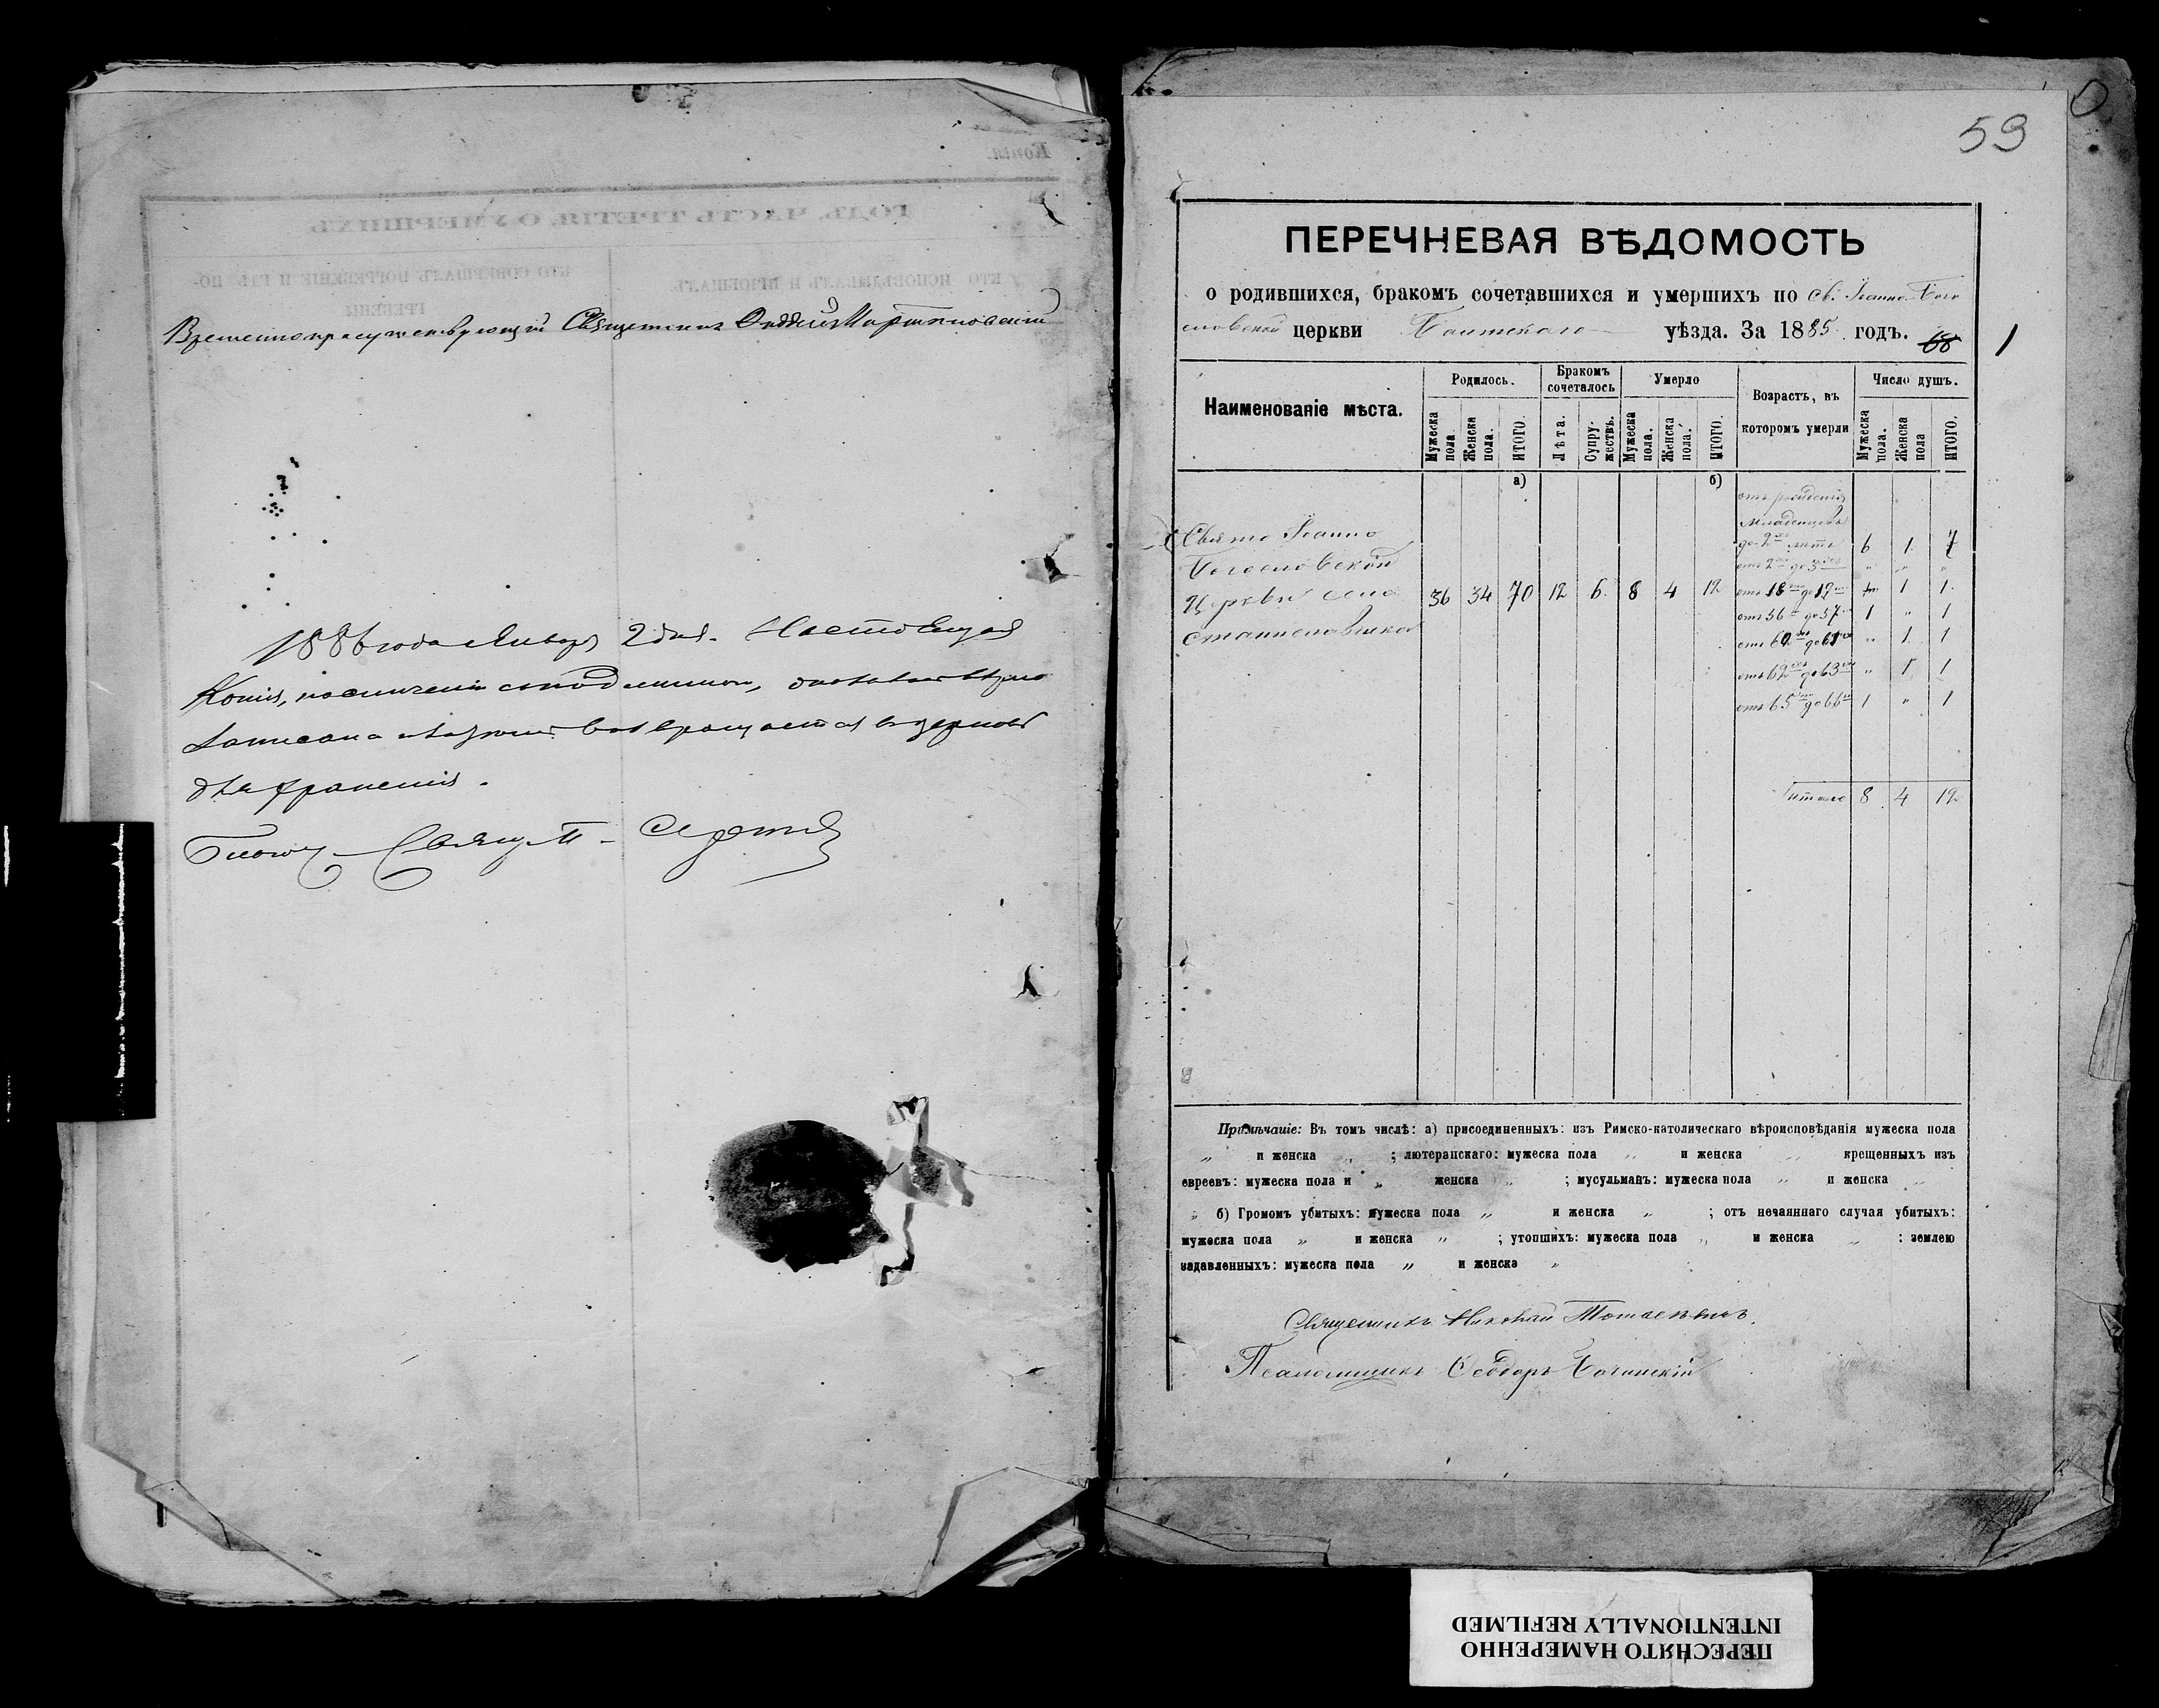 Временноприсутствующій Священникъ Мартыновскій
1886 года Января 2 дня. Настоящая
Копія, по сличеніи съ подлиннымъ, оказалась вѣрно
записана возвращается въ церковь
для храненія.
Благоч. Священ.
59
ПЕРЕЧНЕВАЯ ВѢДОМОСТЬ
о родившихся, бракомъ сочетавшихся и умершихъ по св. Іоанно-Бого
словской церкви Балтскаго уѣзда. За 1885 годъ.
68
1
Наименованіе мѣста.
Родилось.
Бракомъ сочеталось
Умерло
Возрастъ, въ которомъ умерли
Число душъ.
Мужеска пола.
Женска пола.
ИТОГО.
Лѣта.
Супружествъ.
Мужеска пола.
Женска пола.
ИТОГО.
Мужеска пола.
Женска пола
ИТОГО.
а)
б)
отъ рожденія
младенцевъ
Свято Іоанно до 2 лѣтъ 6 1 7
Богословской отъ 2 до 3 „ „ „
Церкви села 36 34 70 12 6 8 4 12 отъ 18 до 19 1 1
Станиславчика отъ 56 до 57 1 „ 1
отъ 60 до 61 „ 1 1
отъ 62 до 63 „ 1 1
отъ 65 до 66 1 „ 1
Итого 8 4 12
Примѣчаніе: Въ томъ числѣ: а) присоединенныхъ: изъ Римско-католическаго вѣроисповѣданія мужеска пола
„ и женска „ ; лютеранскаго: мужеска пола „ и женска „ крещенныхъ изъ
евреевъ: мужеска пола и „ женска „ ; мусульманъ: мужеска пола „ и женска „
„ б) Громомъ убитыхъ: мужеска пола „ и женска „ ; отъ нечаяннаго случая убитыхъ:
мужеска пола „ и женска „ ; утопшихъ: мужеска пола „ и женска „ : землею
задавленныхъ: мужеска пола „ и женска „
Священникъ Николай
Псаломщикъ Ѳеодоръ Бачинскій
ПЕРЕСНЯТО НАМЕРЕННО
INTENTIONALLY REFILMED